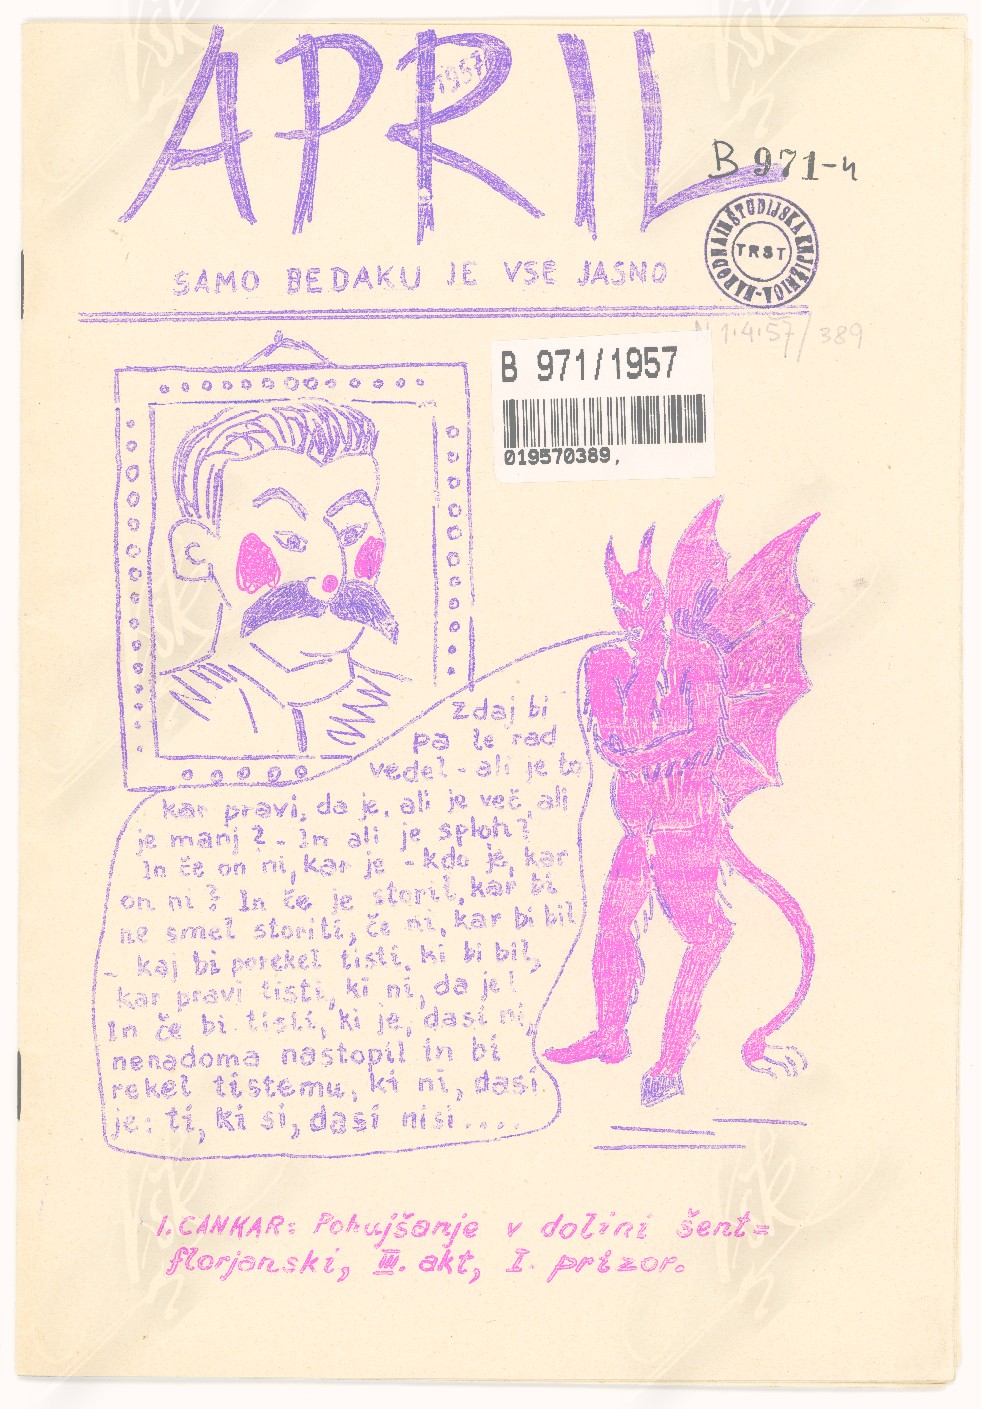 APRIL
1957
B 971-4
NARODNA IN ŠTUDIJSKA KNJIŽNICA
TRST
SAMO BEDAKU JE VSE JASNO
N 1.4.57/389
B 971/1957
019570389,
zdaj bi
pa le rad
vedel - ali je to
kar pravi, da je, ali je več, ali
je manj? - In ali je sploh?
In če on ni, kar je - kdo je, kar
on ni? In če je storil, kar bi
ne smel storiti, če ni, kar bi bil
- kaj bi porekel tisti, ki bi bil,
kar pravi tisti, ki ni, da je!
In če bi tisti, ki je, dasi ni,
nenadoma nastopil in bi
rekel tistemu, ki ni, dasi
je: ti, ki si, dasi nisi....
I. CANKAR: Pohujšanje v dolini šent=
florjanski, III. akt, I. prizor.